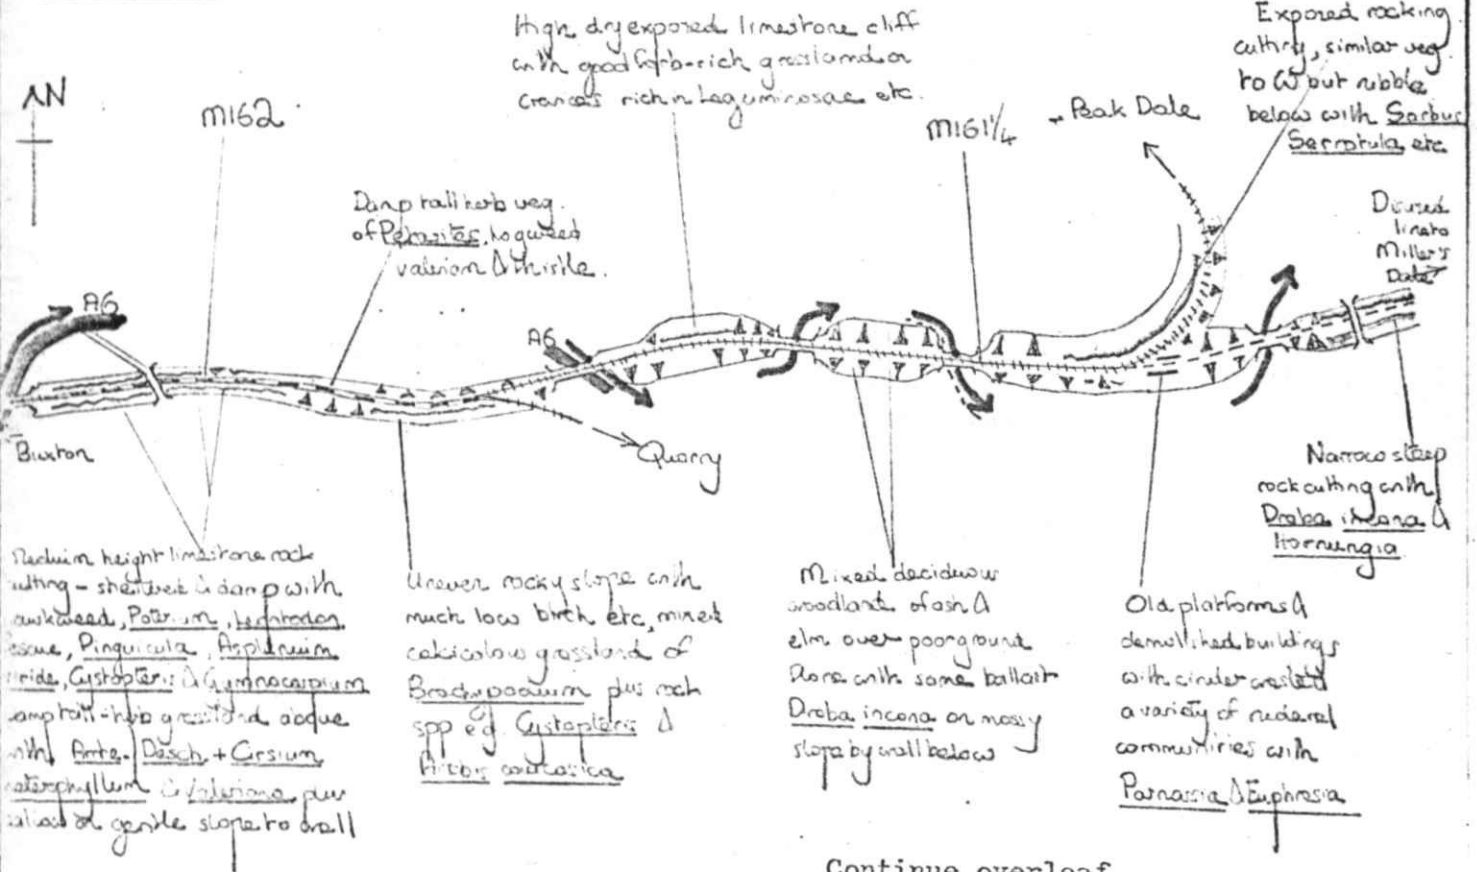 High dry exposed limestone cliff
with good forb-rich grassland on
rich in Leguminosae etc.
Exposed rocking
cutting, similar veg
to W but rubble
below with Sorbus
Serratula etc
N
M162
M161¼
Peak Dale
Damp tall herb veg.
of Petasites, hogweed
valerian & thistle.
Disused
line to
Miller's
Dale
A6
A6
Buxton
Quarry
Narrow steep
rock cutting with
Draba incana &
Hornungia
Medium height limestone rock
cutting - sheltered & damp with
awkweed, Poterium, Leontodon
escue, Pinguicula, Asplenium
viride, Cystopteris & Gymnocarpium
amp tall-herb grassland above
with Arrh. Desch + Cirsium
heterophyllum & Valeriana plus
on gentle slope to wall
Uneven rocky slope with
much low birch etc, mixed
calcicolous grassland of
Brachypodium plus rock
spp eg. Cystopteris &
Arabis caucasica
Mixed deciduous
woodland of ash &
elm over poor ground
flora with some ballast
Draba incana on mossy
slope by wall below
Old platforms &
demolished buildings
with cinder crested
a variety of ruderal
communities with
Parnassia & Euphrasia
Continue overleaf